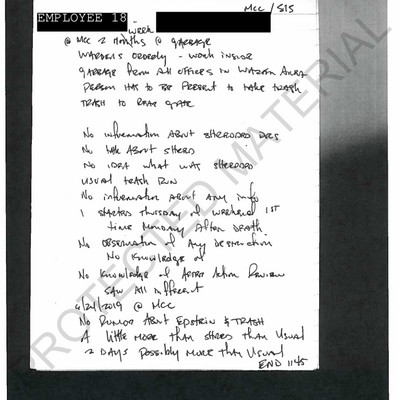 MCC / SIS
EMPLOYEE 18
week
@ MCC 2 Months @ garbage
Warden's orderly - work inside
garbage from all offices in Warden Area
person has to be present to take trash
trash to rear gate
No information about shredded docs
No talk about shreds
No idea what was shredded
usual trash run
No information about any info
I started Thursday of weekend 1st
time Monday After Death.
No observation of Any Destruction
No knowledge of
No knowledge of After Action Review
saw all different
6/21/2019 @ MCC
No rumor about Epstein & trash
A little more than shreds than usual
2 days possibly more than usual
END 1145
PROTECTED MATERIAL